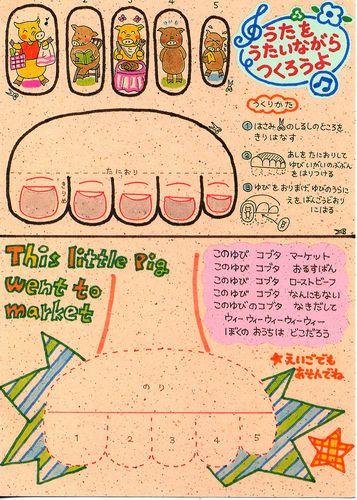 1 2 3 4 5
うたを
うたいながら
つくろうよ
つくりかた
① はさみ✂のしるしのところを
きりはなす
② あしを たにおりして
ゆび いがいのぶぶん
を はりつける
③ ゆびを おりまげ、ゆびのうらに
えを ばんごうどおり
にはる
たにおり
きりこみ
This little Pig
went to
market
このゆび コブタ マーケット
このゆび コブタ おるすばん
このゆび コブタ ローストビーフ
このゆび コブタ なんにもない
このゆびのコブタ なきだして
ウィー ウィーウィーウィーウィー
ぼくの おうちは どこだろう
★えいごでも
あそんでね
のり
1 2 3 4 5